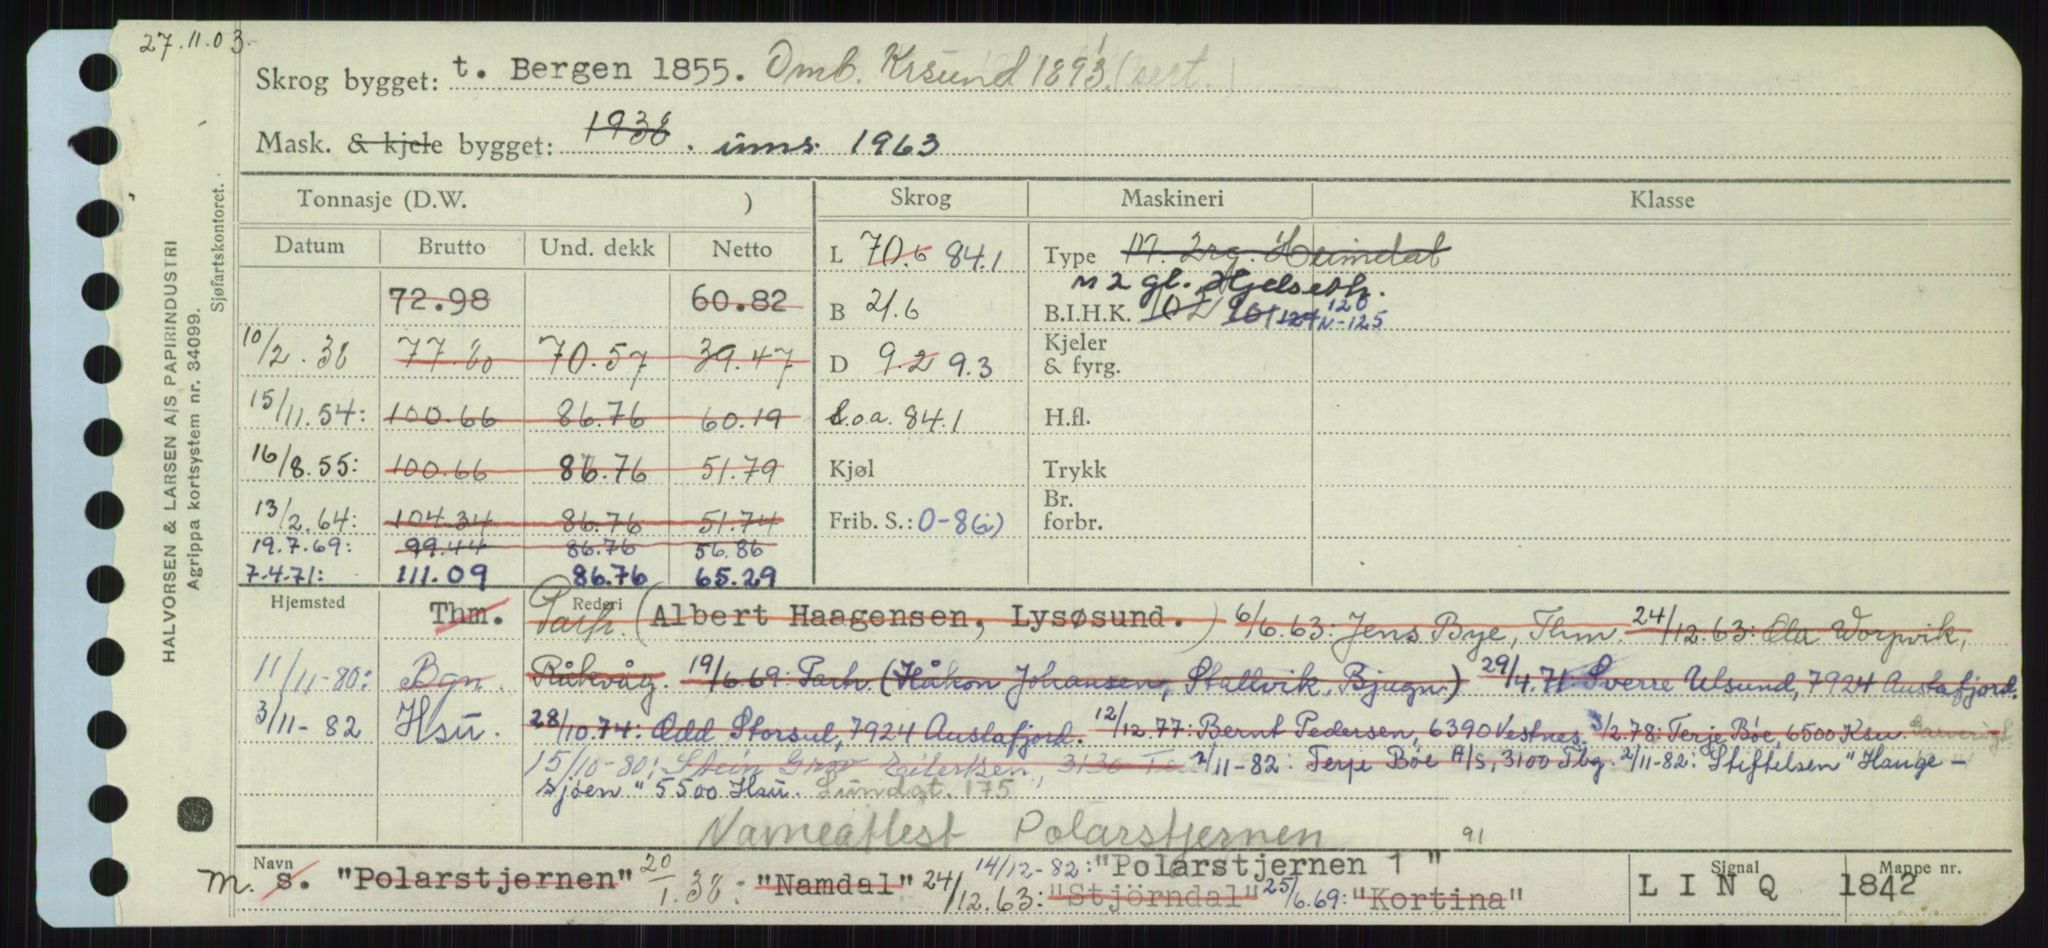 27.11.03.
Skrog bygget: t. Bergen 1855. Omb. Krsund 1893 (sert.)
Mask. & kjele bygget: 1938. inns. 1963
HALVORSEN & LARSEN A/S PAPIRINDUSTRI
Agrippa kortsystem nr. 34099.
Sjøfartskontoret.
Tonnasje (D.W. ) Skrog Maskineri Klasse
Datum Brutto Und. dekk Netto
72.98 60.82
10/2.38 77.80 70.57 39.47
15/11.54: 100.66 86.76 60.19
16/8.55: 100.66 86.76 51.79
13/2.64: 104.34 86.76 51.74
19.7.69: 99.44 86.76 56.86
7-4.71: 111.09 86.76 65.29
L 70.6 84.1
B 21.6
D 9.2 9.3
L.o.a. 84.1
Kjøl
Frib. S.: 0-8(i)
Type M. 2rg. Heimdal
M 2 gl. Hjelseth.
B.I.H.K. 102 101 124 120 N-125
Kjeler & fyrg.
H.fl.
Trykk
Br. forbr.
Hjemsted Thm. Rederi Partr. (Albert Haagensen, Lysøsund.) 6/6.63: Jens Bye, Thm. 24/12.63: Ola Worpvik,
11/11-80: Bgn. Råkvåg. 19/6 69: Partr. (Håkon Johansen, Stallvik, Bjugn.) 29/4.71 Sverre Ulsund, 7924 Austafjord.
3/11-82 Hsu. 28/10.74: Odd Storsul, 7924 Austafjord. 12/12.77: Bernt Pedersen, 6390 Vestnes. 3/2.78: Terje Bøe, 6500 Ksu.
15/10-80: Stein Grov Eilertsen, 3130 2/11-82: Terje Bøe A/S, 3100 Tbg. 2/11-82: Stiftelsen "Hauge-
sjøen" 5500 Hsu. Lundgt. 175
Navneattest Polarstjernen 91
Navn m. s. "Polarstjernen" 20/1.38: "Namdal" 24/12.63: "Stjörndal" 25/6.69: "Kortina"
14/12-82: "Polarstjernen 1"
Signal LINQ
Mappe nr. 1842